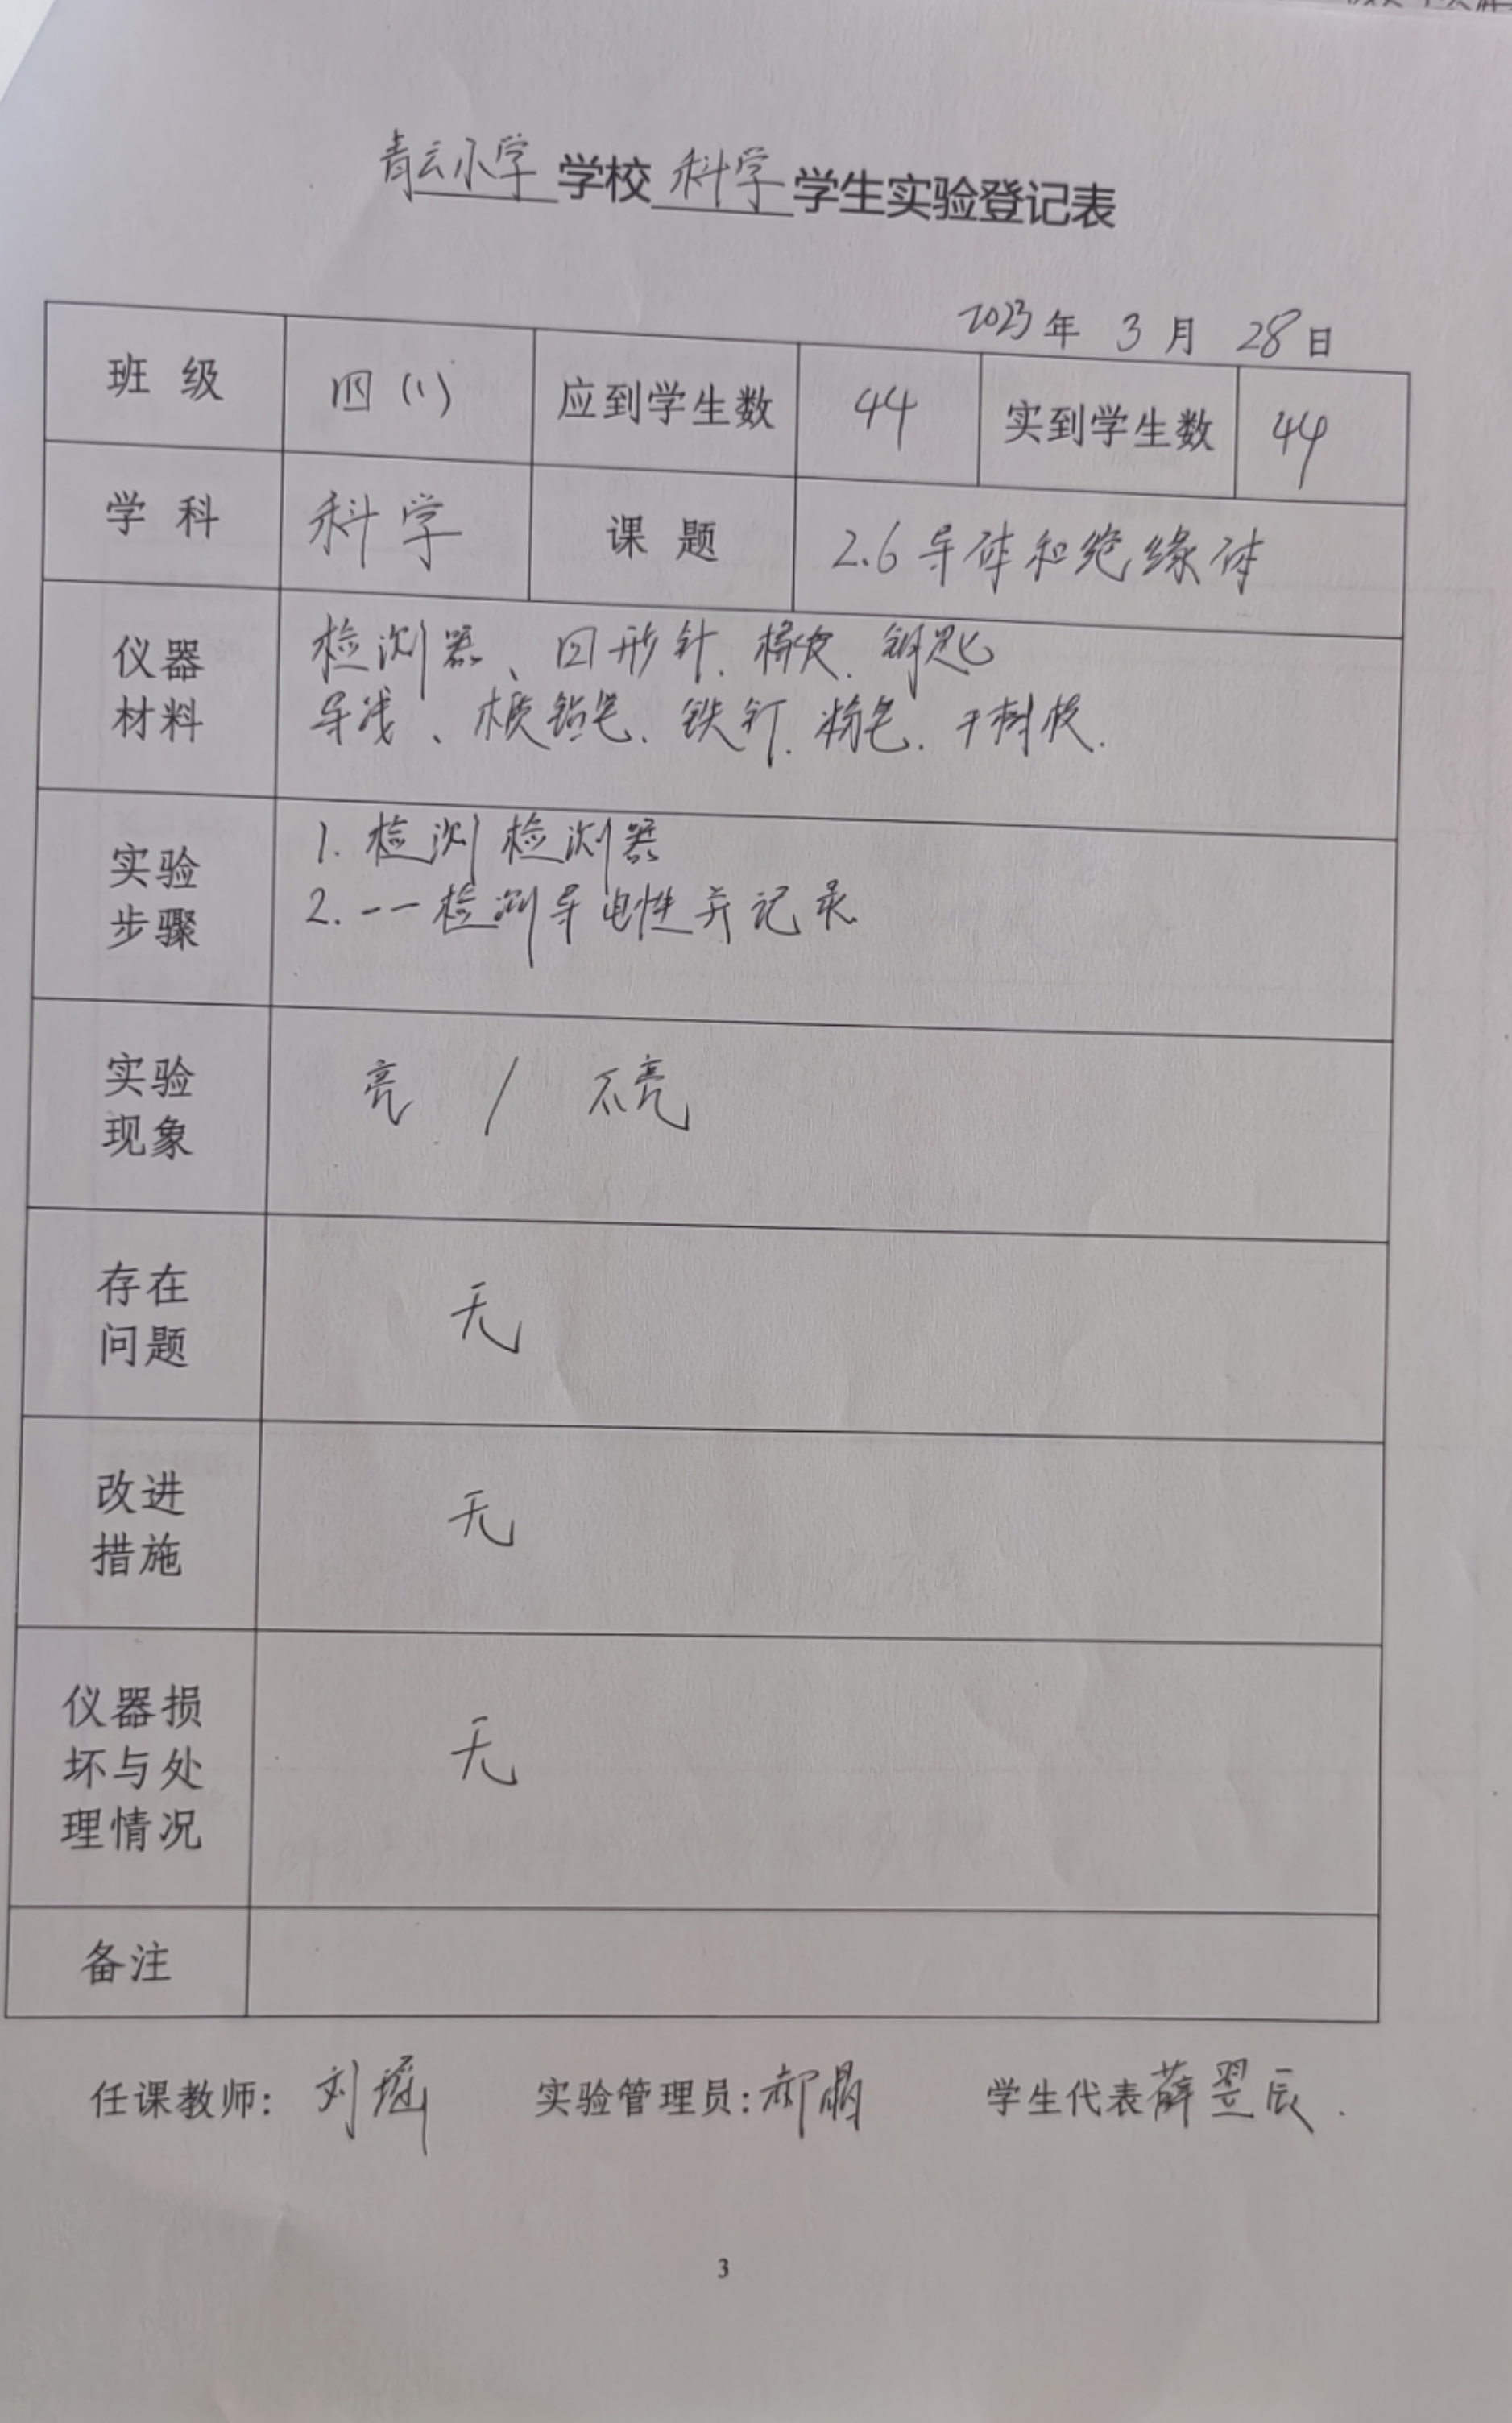 青云小学学校科学学生实验登记表
2023年 3月 28日
班 级 四(1) 应到学生数 44 实到学生数 44
学 科 科学 课 题 2.6导体和绝缘体
仪器材料
检测器、回形针、橡皮、钥匙
导线、木质铅笔、铁钉、粉笔、干树枝.
实验步骤
1. 检测检测器
2. 一一检测导电性并记录
实验现象
亮 / 不亮
存在问题
无
改进措施
无
仪器损坏与处理情况
无
备注
任课教师: 刘 实验管理员: 郝 学生代表薛翌辰.
3